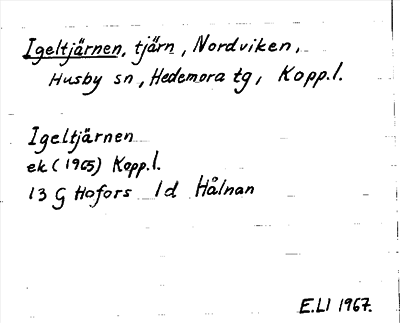 Igeltjärnen, tjärn, Nordviken,
Husby sn, Hedemora tg, Kopp.l.
Igeltjärnen
ek (1965) Kopp.l.
13 G Hofors 1d Hålnan
E.Ll 1967.